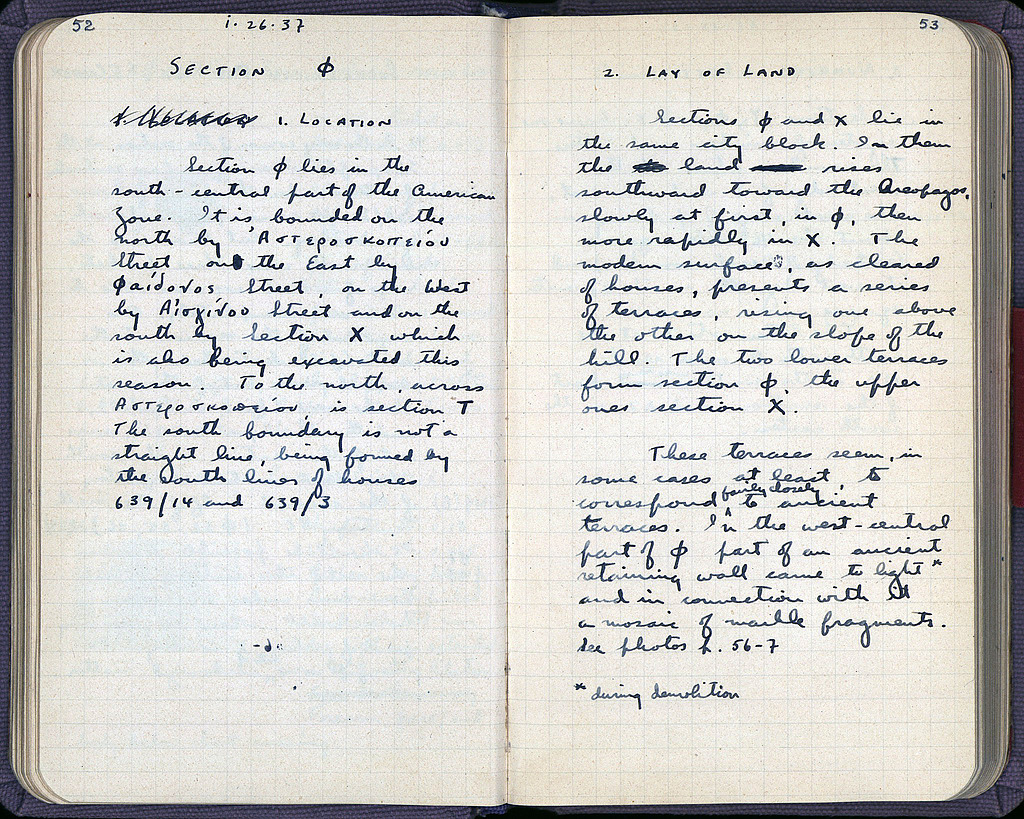 52
1·26·37
SECTION Φ
1. LOCATION
Section Φ lies in the
south-central part of the American
Zone. It is bounded on the
north by Ἀστεροσκοπείου
Street on the East by
Φαίδονος Street, on the West
by Αἰσχίνου Street and on the
south by Section X which
is also being excavated this
season. To the north, across
Ἀστεροσκοπείου, is section T
The south boundary is not a
straight line, being formed by
the south lines of houses
639/14 and 639/3
53
2. LAY OF LAND
Sections Φ and X lie in
the same city block. In them
the land rises
southward toward the Areopagos,
slowly at first, in Φ, then
more rapidly in X. The
modern surface, as cleared
of houses, presents a series
of terraces, rising one above
the other on the slope of the
hill. The two lower terraces
form section Φ, the upper
ones section X.
These terraces seem, in
some cases at least, to
correspond fairly closely to ancient
terraces. In the west-central
part of Φ part of an ancient
retaining wall came to light*
and in connection with it
a mosaic of marble fragments.
See photos p. 56-7
* during demolition